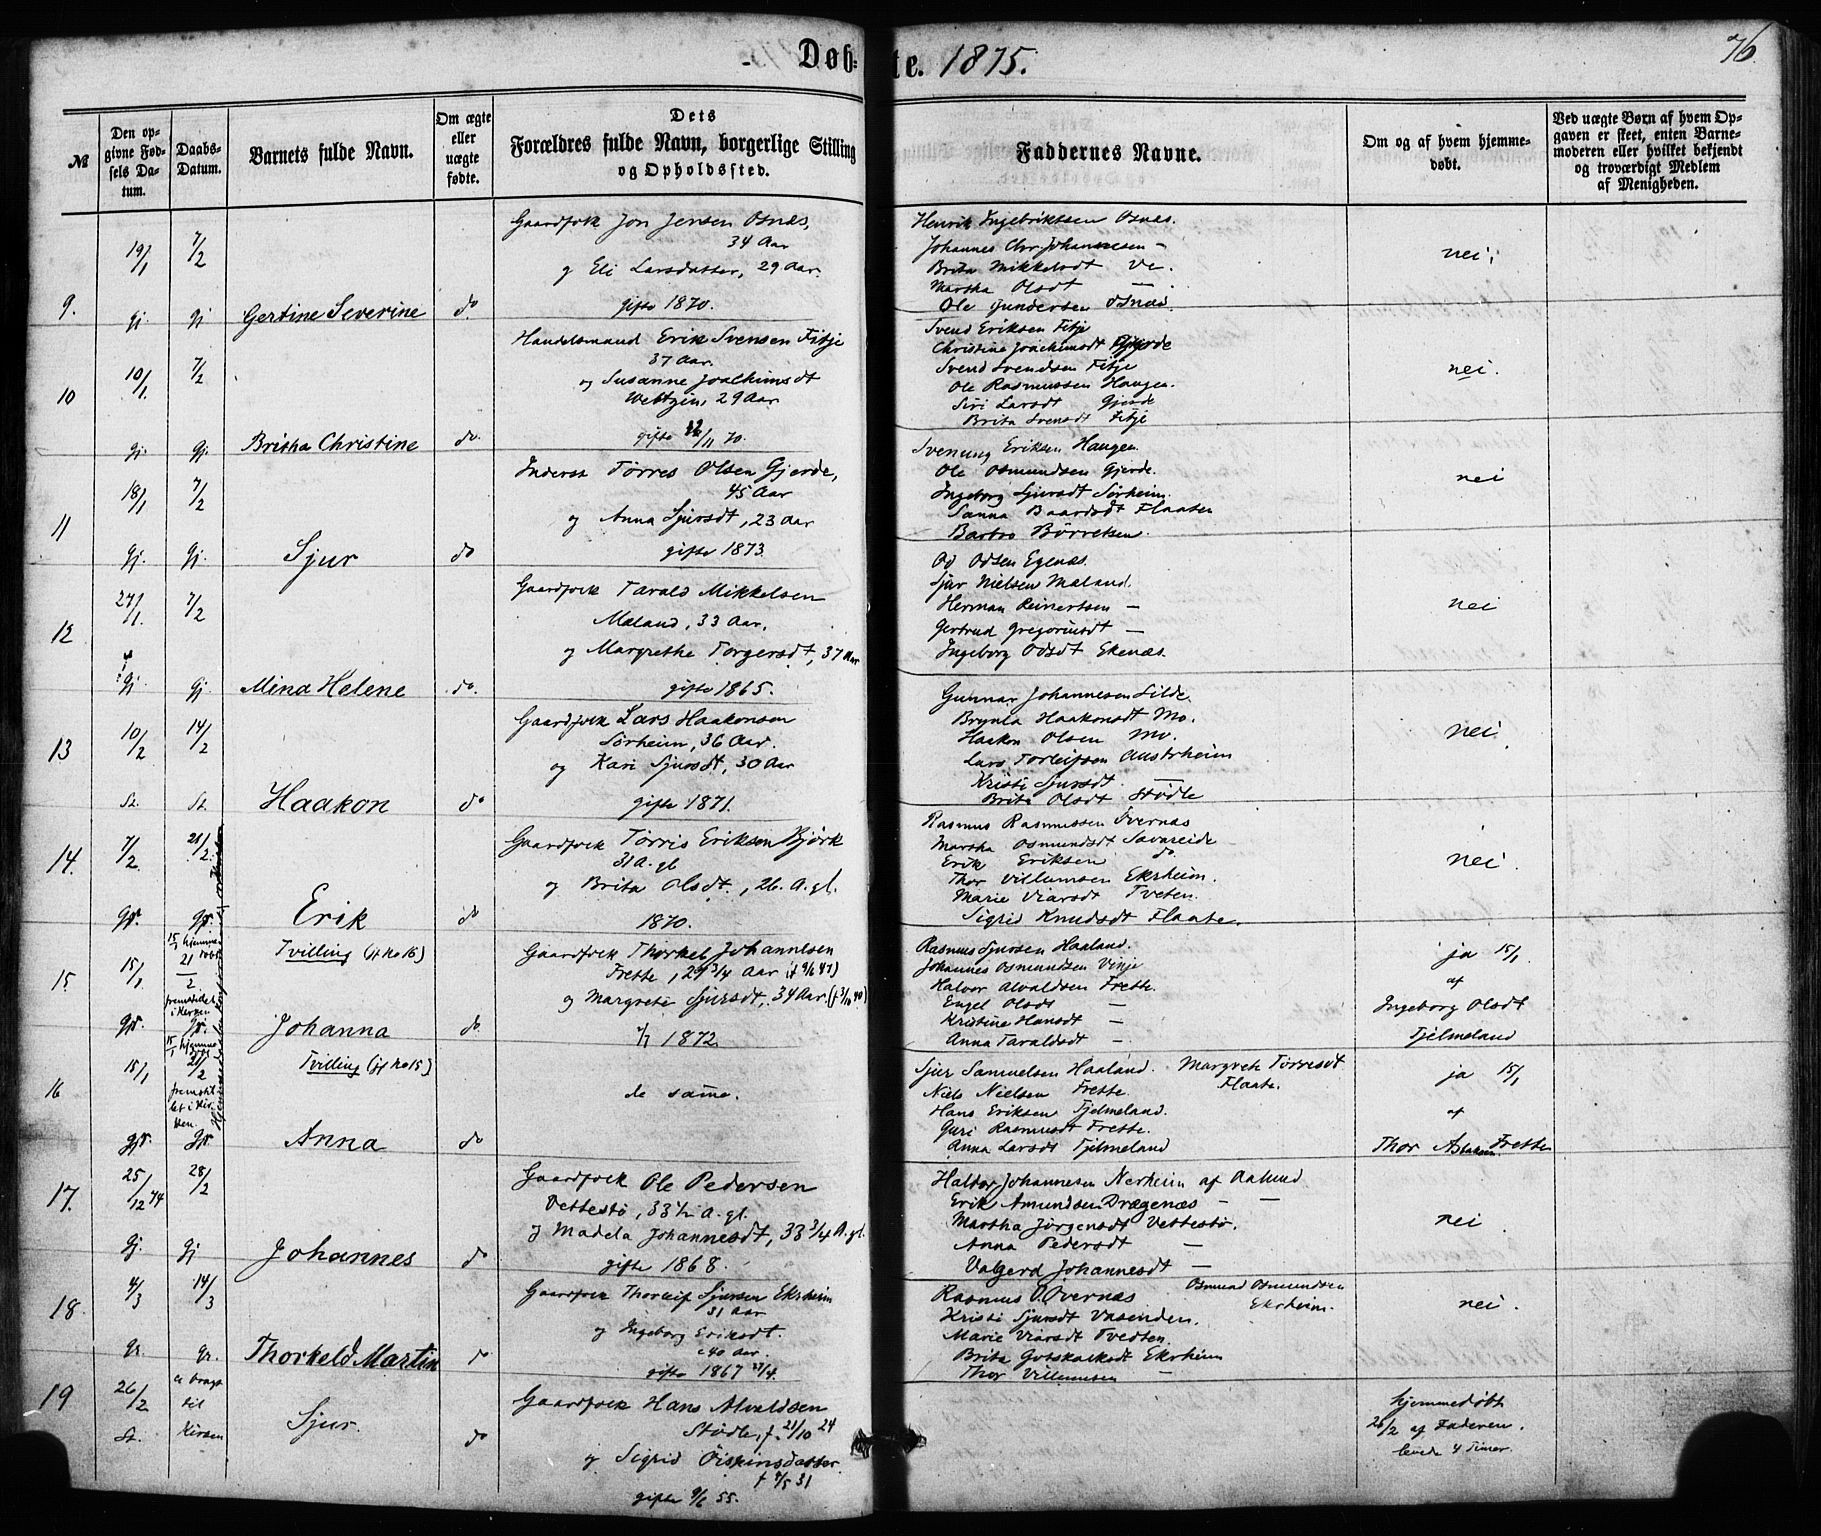 Døb-
te. 1875.
76.
№
Den opgivne Fødsels Datum.
Daabs-Datum.
Barnets fulde Navn.
Om ægte eller uægte fødte.
Dets Forældres fulde Navn, borgerlige Stilling og Opholdssted.
Faddernes Navne.
Om og af hvem hjemmedøbt.
Ved uægte Børn af hvem Opgaven er skeet, enten Barnemoderen eller hvilket bekjendt og troværdigt Medlem af Menigheden.
9.
19/1
7/2
Gj. Gj
Gertine Severine
do.
Gaardfolk Jon Jensen Osnæs,
34 Aar
og Eli Larsdatter, 29 Aar.
gifte 1870.
Henrik Ingebriktsen Osnæs.
Johannes Chr. Johannesen —
Brita Mikkelsdt Ve.
Martha Olsdt —
Ole Gundersen Osnæs.
nei;
10
10/1
7/2
Gj. Gj.
Britha Christine
do.
Handelsmand Erik Svensen Fitje
37 Aar.
og Susanne Joachimsdt
29 Aar
gifte /11 70.
Svend Eriksen Fitje
Christine Joachimsdt
Svend Svendsen Fitje
Ole Rasmussen Haugen.
Siri Larsdt Gjerde
Brita Svensdt Fitje
nei.
11
18/1
7/2
Gj. Gj.
Sjur
do
Inderst Tørres Olsen Gjerde,
45 Aar
og Anna Sjursdt, 23 Aar
gifte 1873.
Svenung Eriksen Haugen
Ole Osmundsen Gjerde.
Ingeborg Sjursdt Sørheim.
Sanna Baardsdt Flaaten
Barbro Børretsen.
nei
12
27/1.
7/2
Gj. Gj.
Mina Helene
do.
Gaardfolk Tarald Mikkelsen
Mæland, 33 Aar.
og Margrethe Torgersdt, 37 Aar
gifte 1865.
Od Odsen Egenæs.
Sjur Nielsen Mæland.
Herman Reinertsen —
Gertrud Gregoriusdt —
Ingeborg Odsdt Ekenæs.
nei
13
10/2
14/2
St. St.
Haakon
do
Gaardfolk Lars Haakonsen
Sørheim, 36 Aar.
og Kari Sjursdt, 30 Aar
gifte 1871.
Gunnar Johannesen Silde.
Brynla Haakonsdt Mo.
Haakon Olsen Mo.
Lars Torleifsen Austrheim
Kristi Sjursdt —
Brita Olsdt Stødle
nei.
14.
7/2
21/2.
Erik
do
Gaardfolk Tørris Eriksen Bjørk
31 A. gl
og Brita Olsdt., 26. A. gl.
1870.
Rasmus Rasmussen Øvernæs
Martha Osmundsdt Savareide
Erik Eriksen do.
Thor Villumsen Ekrheim.
Marie Viarsdt Tveten.
Sigrid Knudsdt Flaate.
nei.
15.
15/1
15/1 hjemmedøbt
21/2
fremstillet i Kirken
Tvilling (jf No 16)
Johanna
do
Gaardfolk Thorkel Johannesen
Frette, 27 3/4 Aar (f 9/6 47)
og Margrete Sjursdt, 34 Aar. (f 3/10 40)
7/7 1872.
Rasmus Sjursen Haaland.
Johannes Osmundsen Vinje
Halvor Alvaldsen Frette.
Engel Olsdt —
Kristine Hansdt —
Anna Taraldsdt —
ja 15/1
af
Ingeborg Olsdt
Fjelmeland
16
15/1
15/1 hjemmedøbt
21/2
fremstillet i Kirken.
Tvilling (jf No 15)
Anna
do
de samme.
Sjur Samuelsen Haaland. Margrete Tørresdt
Niels Nielsen Frette. Flaate.
Hans Eriksen Fjelmeland.
Guri Rasmusdt Frette.
Anna Larsdt Fjelmeland
ja 15/1
af
Thor Frette
17.
25/12 74
28/2
Gj. Gj
Johannes
do
Gaardfolk Ole Pedersen
Vettestø, 33 1/2 A. gl.
og Madela Johannesdt, 33 3/4 A. gl.
gifte 1868.
Haldor Johannesen Nerheim af Aalund
Erik Amundsen Drægenæs — —
Martha Jørgensdt Vettestø.
Anna Pedersdt —
Valgerd Johannesdt —
nei
18
4/3
14/3
Gr. Gr.
Thorkeld Martin
do
Gaardfolk Thorleif Sjursen Ekrheim
31 Aar
og Ingeborg Eriksdt.
40 Aar.
gifte 1867 27/4.
Rasmus O. Øvernæs Osmund Osmundsen
Ekrheim.
Kristi Sjursdt Vasenden.
Marie Viarsdt Tvedten.
Brita Gotskalksdt Ekrheim
Thor Villumsen —
nei.
19
26/2
St.
ei bragt til Kirken
Sjur.
do
Gaardfolk Hans Alvaldsen
Stødle, f. 21/10 24
og Sigrid Øistensdatter
f 7/5 31
gifte 9/6 55.
hjemmedøbt
26/2 af Faderen.
levede 4 Timer.